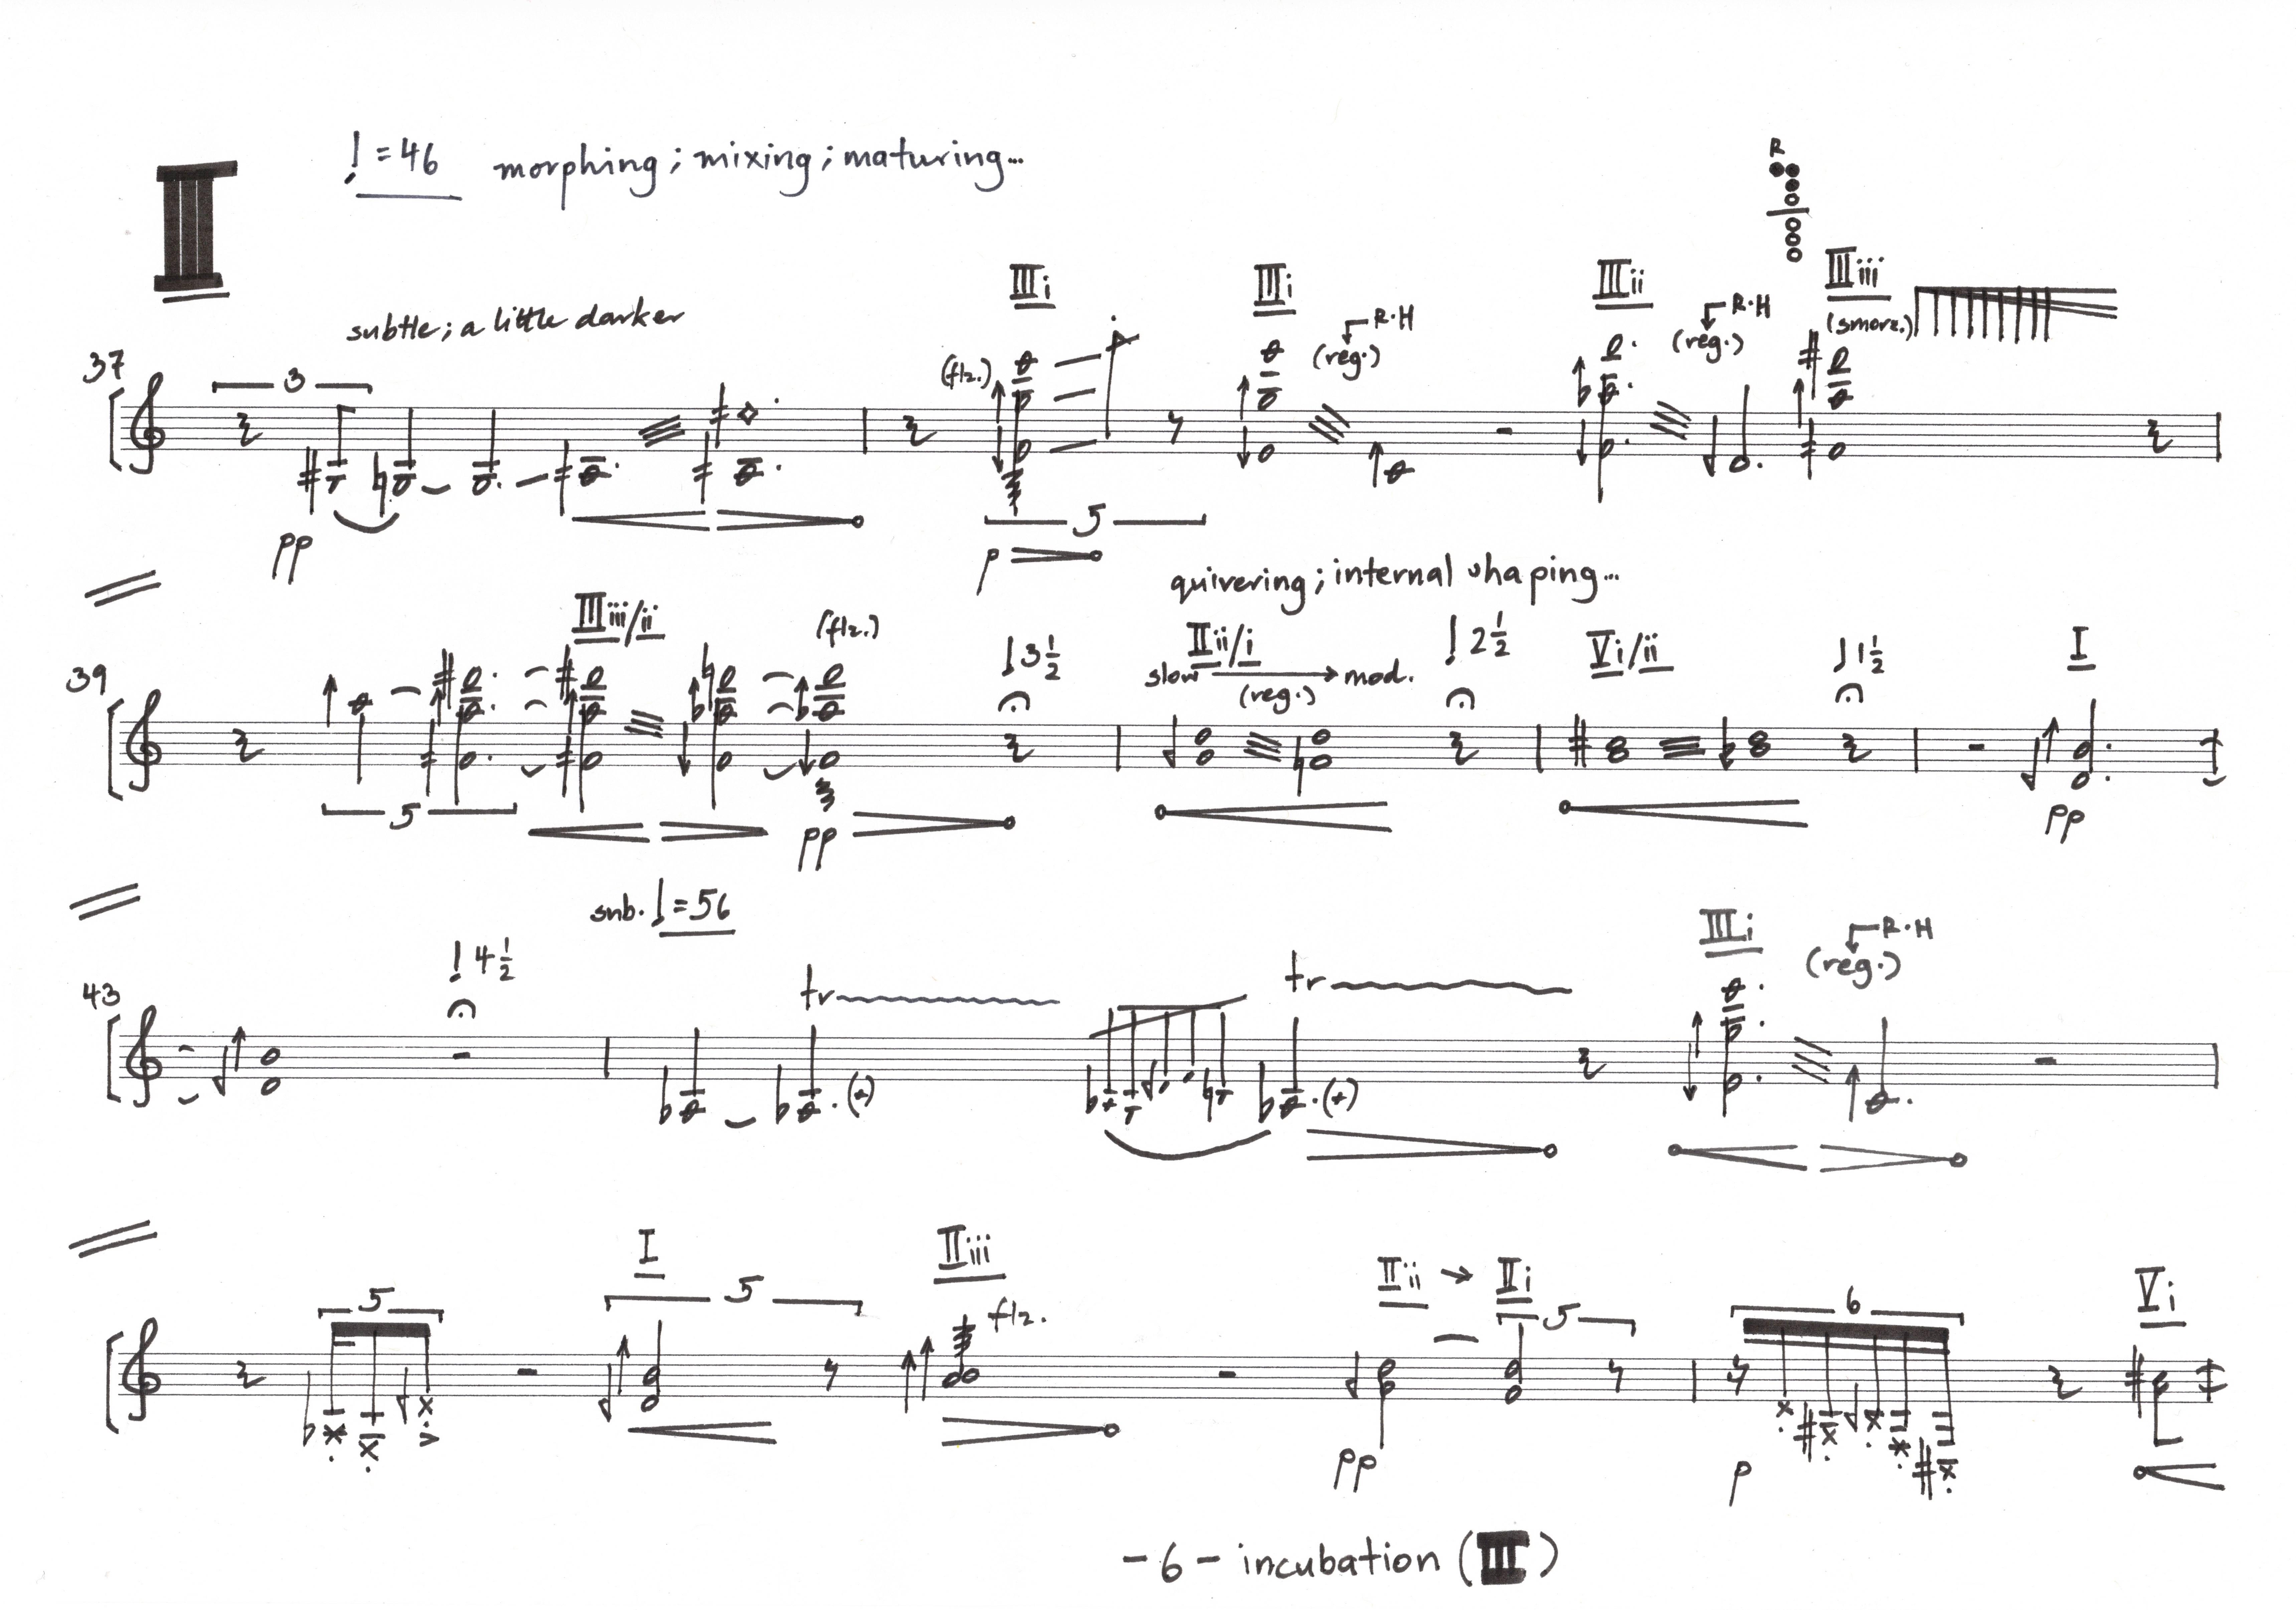 III
♩=46 morphing; mixing; maturing...
R
subtle; a little darker
IIIi
IIIi
IIIii
IIIiii
37
3
(flz.)
(reg.)
R.H
(reg.)
R.H
(smorz.)
pp
5
p
quivering; internal shaping...
39
IIIiii/ii
(flz.)
♩3½
IIii/i
slow
(reg.)
mod.
♩2½
Vi/ii
♩1½
I
5
pp
pp
sub. ♩=56
43
♩4½
tr
tr
IIIi
(reg.)
R.H
5
I
5
IIiii
flz.
IIii → IIi
5
6
Vi
pp
p
-6- incubation (III)